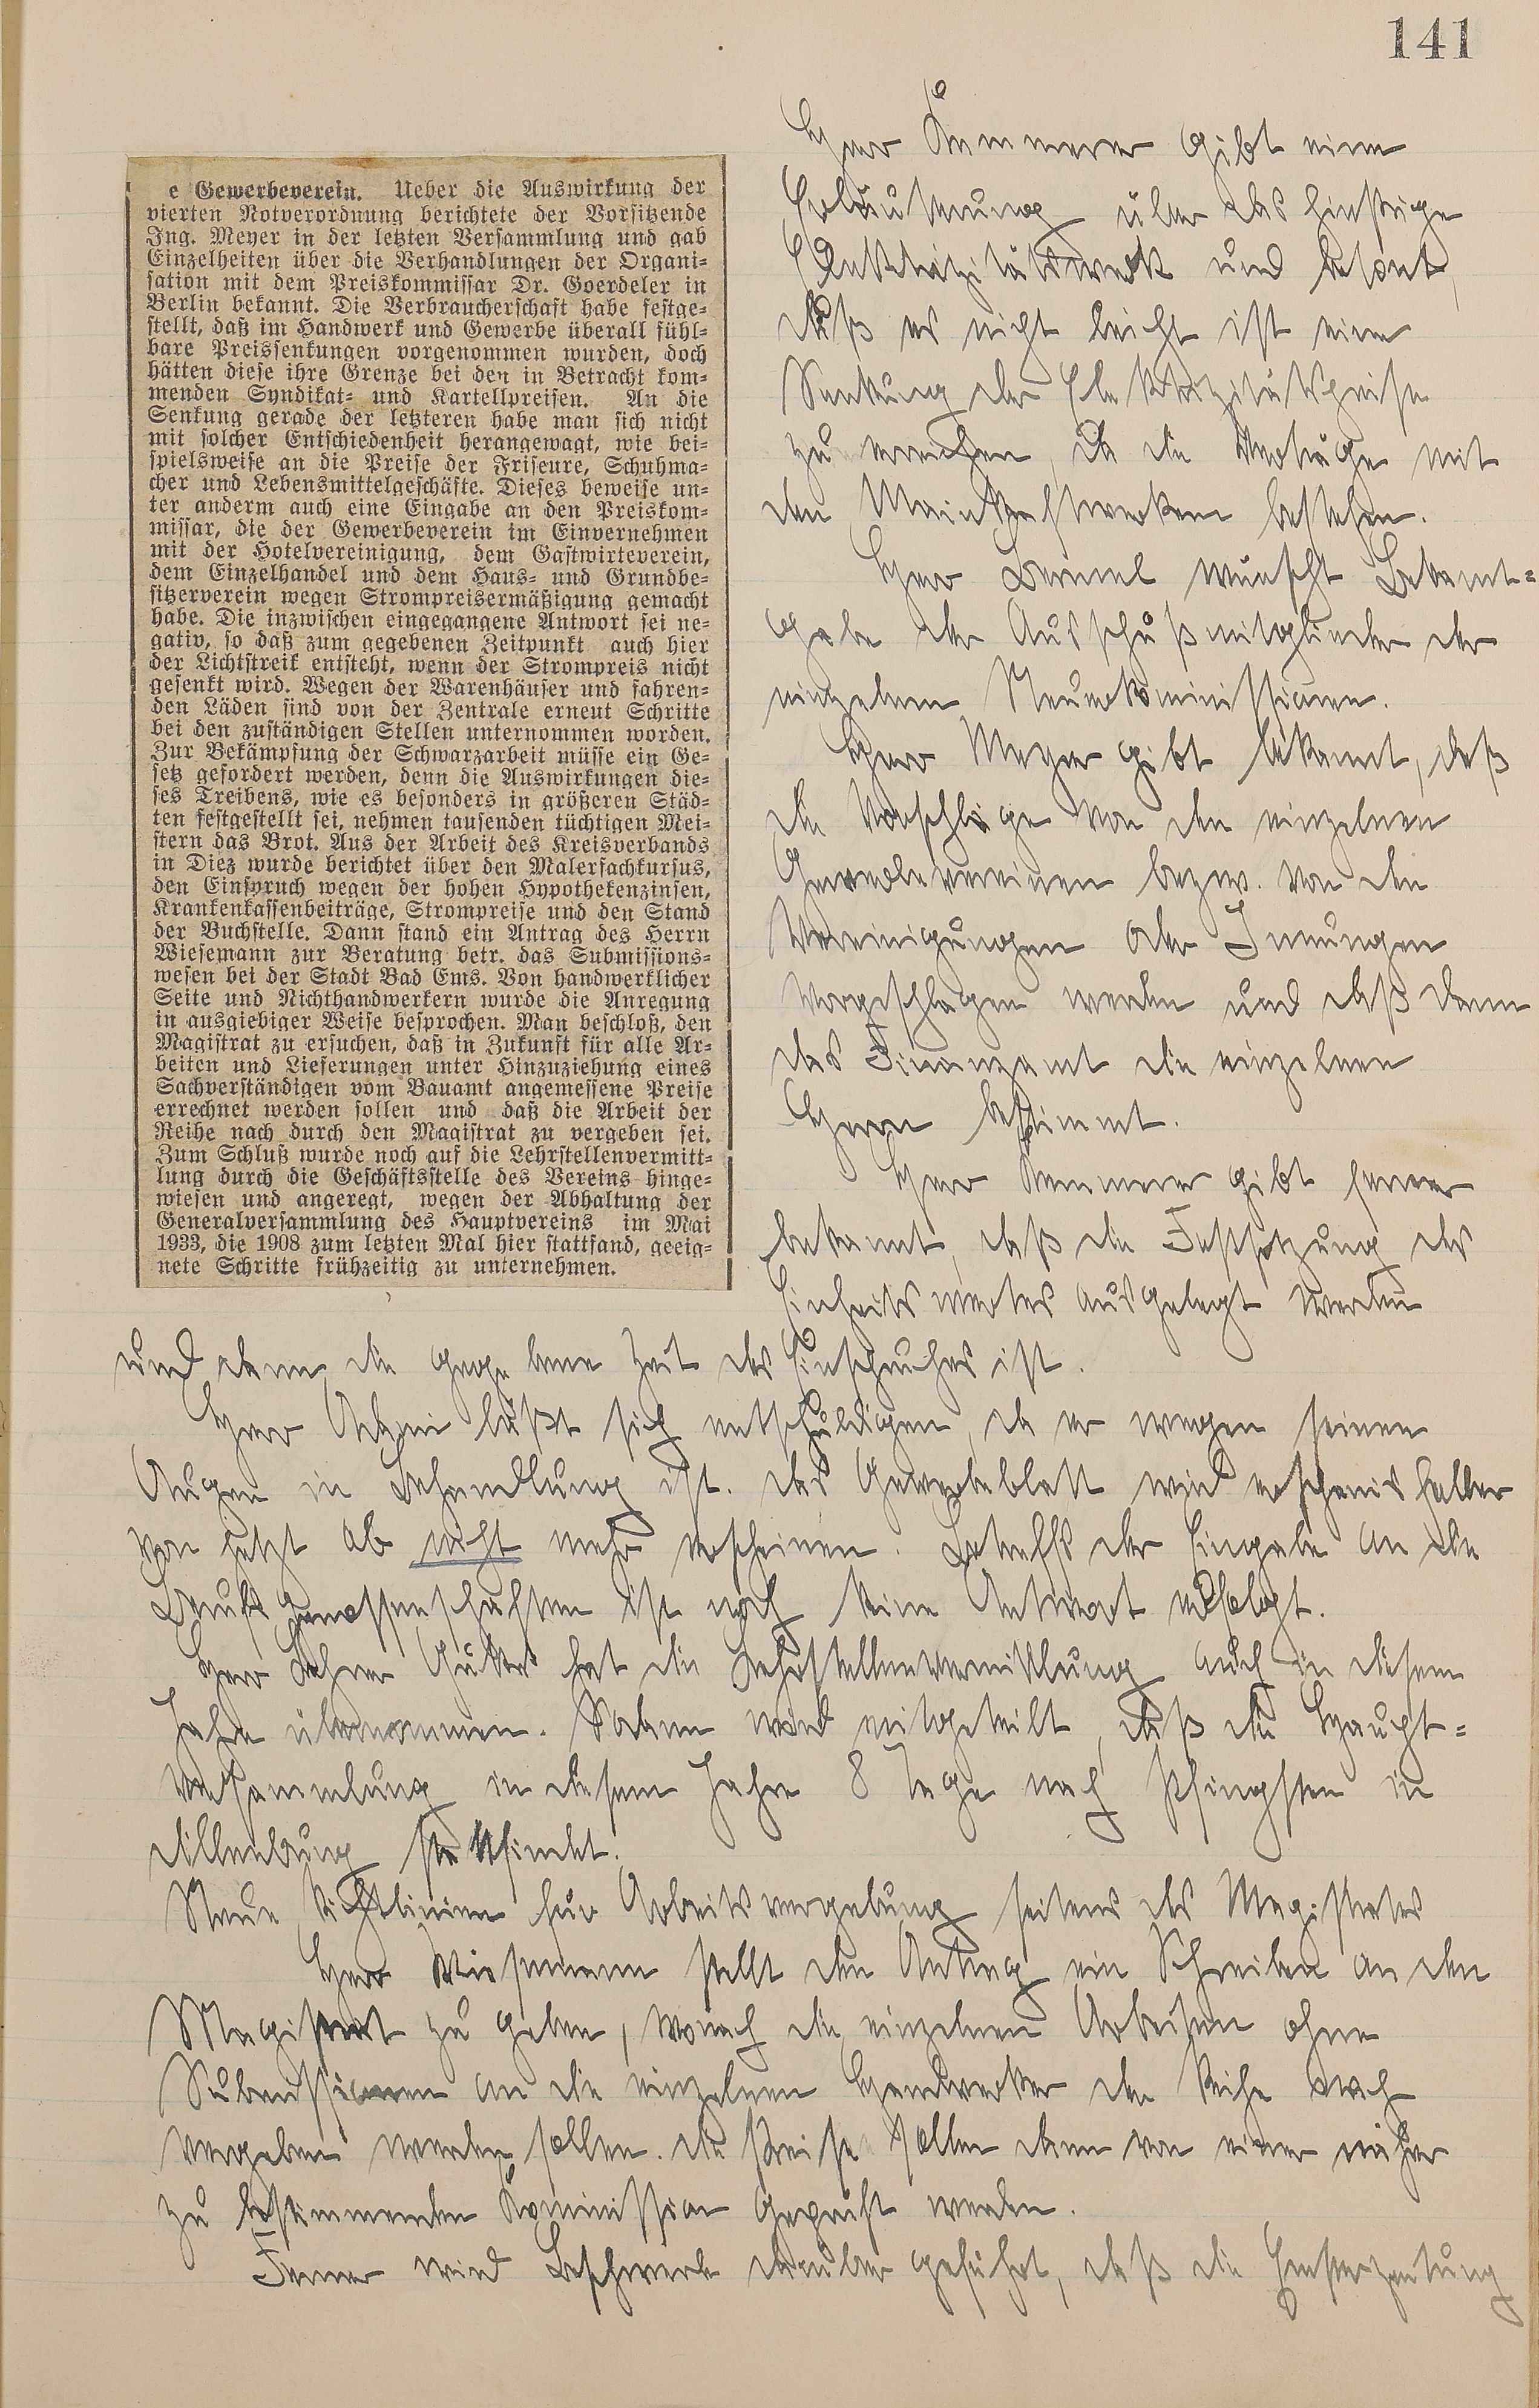 141
e Gewerbeverein. Ueber die Auswirkung der
vierten Notverordnung berichtete der Vorsitzende
Ing. Meyer in der letzten Versammlung und gab
Einzelheiten über die Verhandlungen der Organi-
sation mit dem Preiskommissar Dr. Goerdeler in
Berlin bekannt. Die Verbraucherschaft habe festge-
stellt, daß im Handwerk und Gewerbe überall fühl-
bare Preissenkungen vorgenommen wurden, doch
hätten diese ihre Grenze bei den in Betracht kom-
menden Syndikat- und Kartellpreisen. An die
Senkung gerade der letzteren habe man sich nicht
mit solcher Entschiedenheit herangewagt, wie bei-
spielsweise an die Preise der Friseure, Schuhma-
cher und Lebensmittelgeschäfte. Dieses beweise un-
ter anderm auch eine Eingabe an den Preiskom-
missar, die der Gewerbeverein im Einvernehmen
mit der Hotelvereinigung, dem Gastwirteverein,
dem Einzelhandel und dem Haus- und Grundbe-
sitzerverein wegen Strompreisermäßigung gemacht
habe. Die inzwischen eingegangene Antwort sei ne-
gativ, so daß zum gegebenen Zeitpunkt auch hier
der Lichtstreik entsteht, wenn der Strompreis nicht
gesenkt wird. Wegen der Warenhäuser und fahren-
den Läden sind von der Zentrale erneut Schritte
bei den zuständigen Stellen unternommen worden.
Zur Bekämpfung der Schwarzarbeit müsse ein Ge-
setz gefordert werden, denn die Auswirkungen die-
ses Treibens, wie es besonders in größeren Städ-
ten festgestellt sei, nehmen tausenden tüchtigen Mei-
stern das Brot. Aus der Arbeit des Kreisverbands
in Diez wurde berichtet über den Malerfachkursus,
den Einspruch wegen der hohen Hypothekenzinsen,
Krankenkassenbeiträge, Strompreise und den Stand
der Buchstelle. Dann stand ein Antrag des Herrn
Wiesemann zur Beratung betr. das Submissions-
wesen bei der Stadt Bad Ems. Von handwerklicher
Seite und Nichthandwerkern wurde die Anregung
in ausgiebiger Weise besprochen. Man beschloß, den
Magistrat zu ersuchen, daß in Zukunft für alle Ar-
beiten und Lieferungen unter Hinzuziehung eines
Sachverständigen vom Bauamt angemessene Preise
errechnet werden sollen und daß die Arbeit der
Reihe nach durch den Magistrat zu vergeben sei.
Zum Schluß wurde noch auf die Lehrstellenvermitt-
lung durch die Geschäftsstelle des Vereins hinge-
wiesen und angeregt, wegen der Abhaltung der
Generalversammlung des Hauptvereins im Mai
1933, die 1908 zum letzten Mal hier stattfand, geeig-
nete Schritte frühzeitig zu unternehmen.
Herr Kemmerer gibt eine
Erläuterung über das hiesige
Elektrizitätswerk und betont,
daß es nicht leicht ist eine
Senkung der Elektrizitätspreise
zu erreichen, da die Verträge mit
den Mainkraftwerken bestehen.
Herr wünscht Bekannt=
gabe der Ausschußmitglieder der
einzelnen Steuerkommissionen.
Herr Meyer gibt bekannt, daß
die Vorschläge von den einzelnen
Gewerbevereinen bezw. von den
Vereinigungen oder Innungen
vorgeschlagen werden und daß dann
das Finanzamt die einzelnen
Herrn bestimmt.
Herr Kemmerer gibt ferner
bekannt, daß die Festsetzung des
Einheitswertes ausgelegt werden
und dann die gegebene Zeit des Einspruches ist.
Herr läßt sich entschuldigen, da er wegen seinen
Augen in Behandlung ist. Das Gewerbeblatt wird
von jetzt ab nicht mehr erscheinen. Betreffs der Eingabe an die
Berufsgenossenschaften ist noch keine Antwort erfolgt.
Herr Lehrer hat die Lehrstellenvermittlung auch in diesem
Jahre übernommen. Sodann wird mitgeteilt, daß die Haupt=
versammlung in diesem Jahre 8 Tage nach Pfingsten in
Dillenburg stattfindet.
Neue Richtlinien für Arbeitsvergebung seitens des Magistrates
Herr Wiesemann stellt den Antrag ein Schreiben an den
Magistrat zu geben, wonach die einzelnen Arbeiten ohne
Submissionen an die einzelnen Handwerker der Reihe nach
vergeben werden sollen. Die Preise sollen dann von einer näher
zu bestimmenden Kommission geprüft werden.
Ferner wird Beschwerde darüber geführt, daß die Emserzeitung